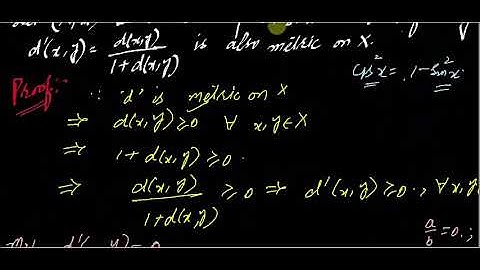 d'(x,y) = d(x,y)/1+d(x,y) is also metric on X.
cos²x = 1-Sin²x
Proof:- ∵ 'd' is metric on X
⇒ d(x,y) ≥ 0 ∀ x,y∈X
⇒ 1+d(x,y) ≥ 0.
⇒ d(x,y)/1+d(x,y) ≥ 0 ⇒ d'(x,y) ≥ 0., ∀ x,y
a/b = 0.;